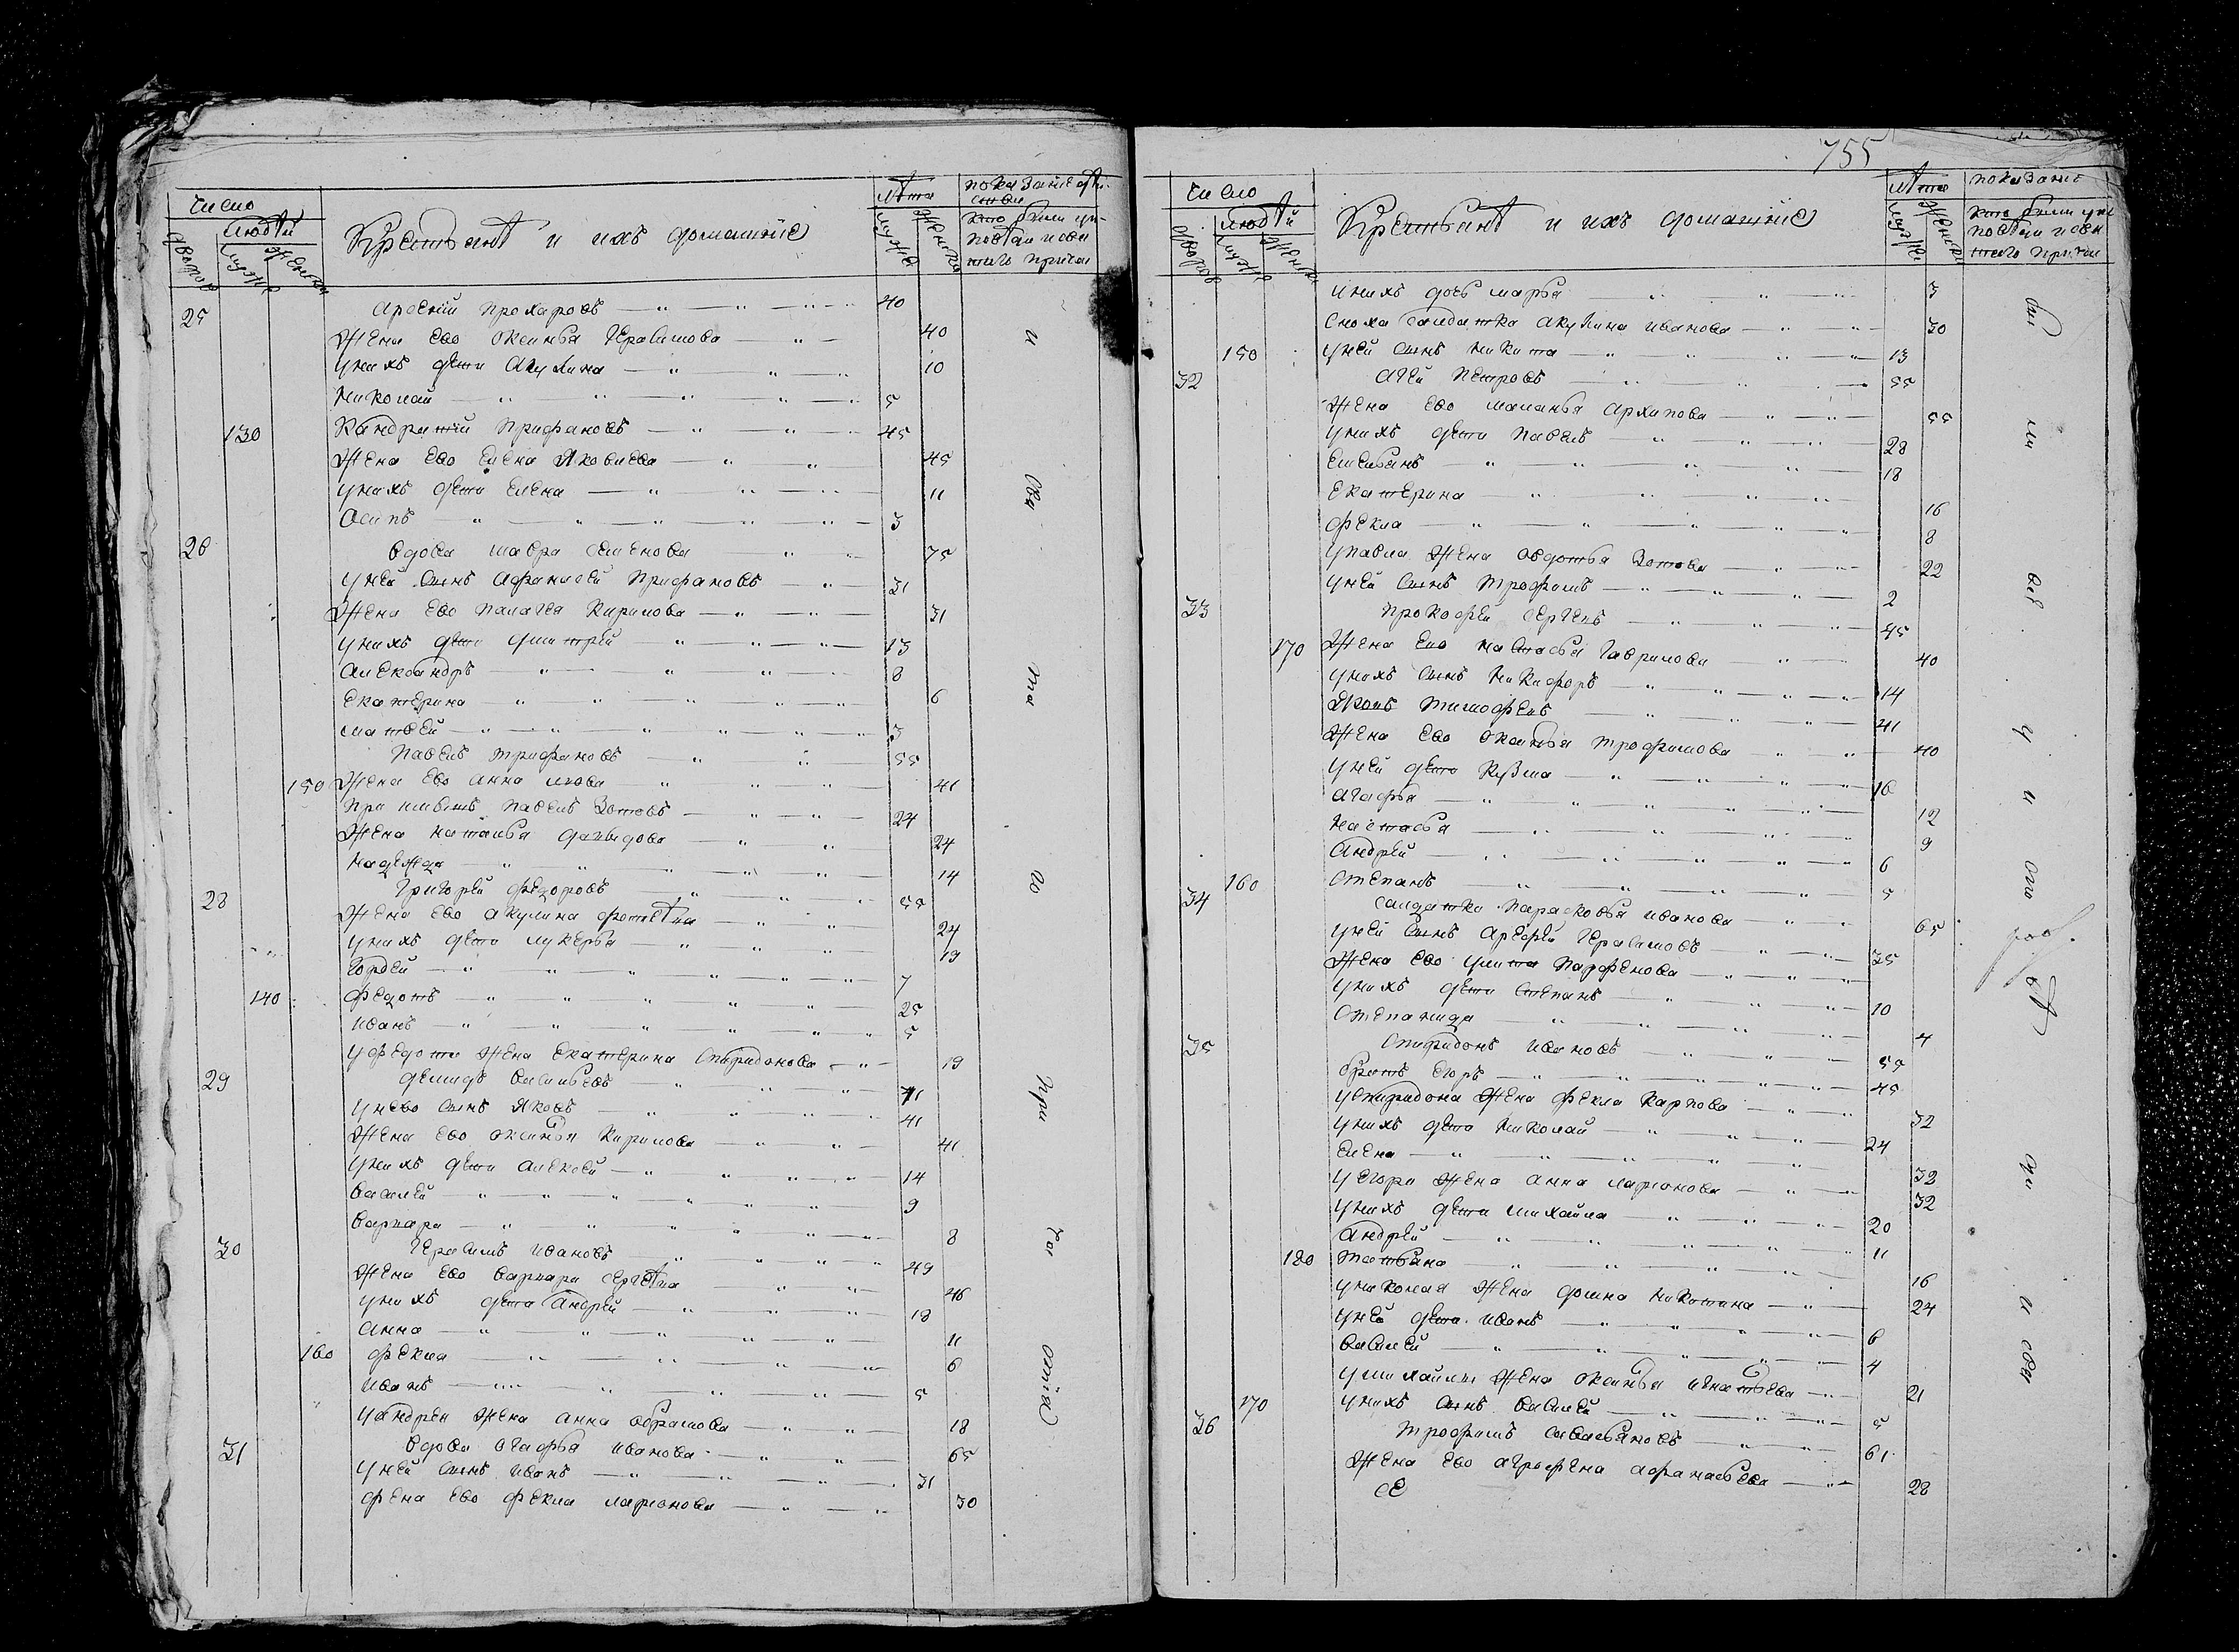 число
людей
дворовъ
мужск
женска
Крестьянѣ и ихъ домашніе
лѣта
мужск
женска
показаніе
кто были у
поведи и свя
таго причас
25 Арсеній Прохаровъ 40
Жена ево Оксинья Герасимова 40
У нихъ дети Акулина 10
Николай 5
130 Кандратій Трифановъ 45
Жена ево Елена Яковлева 45
У нихъ дети Елена 11
Осипъ 3
26 вдова Мавра Семенова 75
У ней сынъ Афанасей Трифановъ 31
Жена ево Палагея Кирилова 31
У нихъ дети Дмитрей 13
Александръ 8
Екатерина 6
Матвей 3
Павелъ Трифановъ 55
150 Жена ево Анна 41
Павелъ Зотовъ 24
Жена Наталья Давыдова 24
Надежда 14
28 Григорей Федоровъ 55
Жена ево Акулина 24
У нихъ дети Лукерья 19
Гордей 7
140 Федотъ 25
Иванъ 5
У Федота жена Екатерина Спиридонова 19
29 Демидъ Васильевъ 71
У нево сынъ Яковъ 41
Жена ево Оксинья Кирилова 41
У нихъ дети Алексей 14
Василей 9
Варвара 8
30 Герасимъ Ивановъ 49
Жена ево Варвара Сергѣева 46
У нихъ дети Андрей 18
Анна 11
160 Фекла 6
Иванъ 5
У Андрея жена Анна Абрамова 18
31 вдова Агафья Иванова 65
У ней сынъ Иванъ 31
Жена ево Фекла Ларионова 30
и
свя
таго
при
ча
стія
755
число
людей
дворовъ
мужск
женска
Крестьянѣ и ихъ домашніе
лѣта
мужск
женска
показаніе
кто были у
поведи и свя
таго причас
У нихъ дочь Марья 3
Сноха салдатка Акулина Иванова 30
150 У ней сынъ Никита 13
32 Агей Петровъ 55
Жена ево Маланья Архипова 55
У нихъ дети Павелъ 28
Емельянъ 18
Екатерина 16
Фекла 8
У Павла жена Авдотья Зотова 22
У ней сынъ Трофимъ 2
33 Прокофей Сергевъ 45
170 Жена ево Настасья Гаврилова 40
У нихъ сынъ Никифоръ 14
Яковъ Тимофевъ 41
Жена ево Оксинья Трофимова 40
У ней дети Кузма 16
Агафья 12
Настасья 9
Андрей 6
160 Степанъ 5
34 Салдатка Парасковья Иванова 65
У ней сынъ Арефей Герасимовъ 35
Жена ево Улита Парфенова
У нихъ дети Степанъ 10
Степанида 4
35 Спиридонъ Ивановъ 55
Братъ Егоръ 45
У Спиридона жена Фекла Карпова 32
У нихъ дети Николай 24
Елена 32
У Егора жена Анна Ларионова 32
У нихъ дети Михайла 20
Андрей 11
180 Татьяна 16
У Николая жена Домна Никитина 24
У ней дети Иванъ 6
Василей 4
У Михайлы жена Оксинья Игнатьева 21
170 У нихъ сынъ Василей 5
36 Трофимъ Савельяновъ 61
Жена ево Агрофена Афанасьева 28